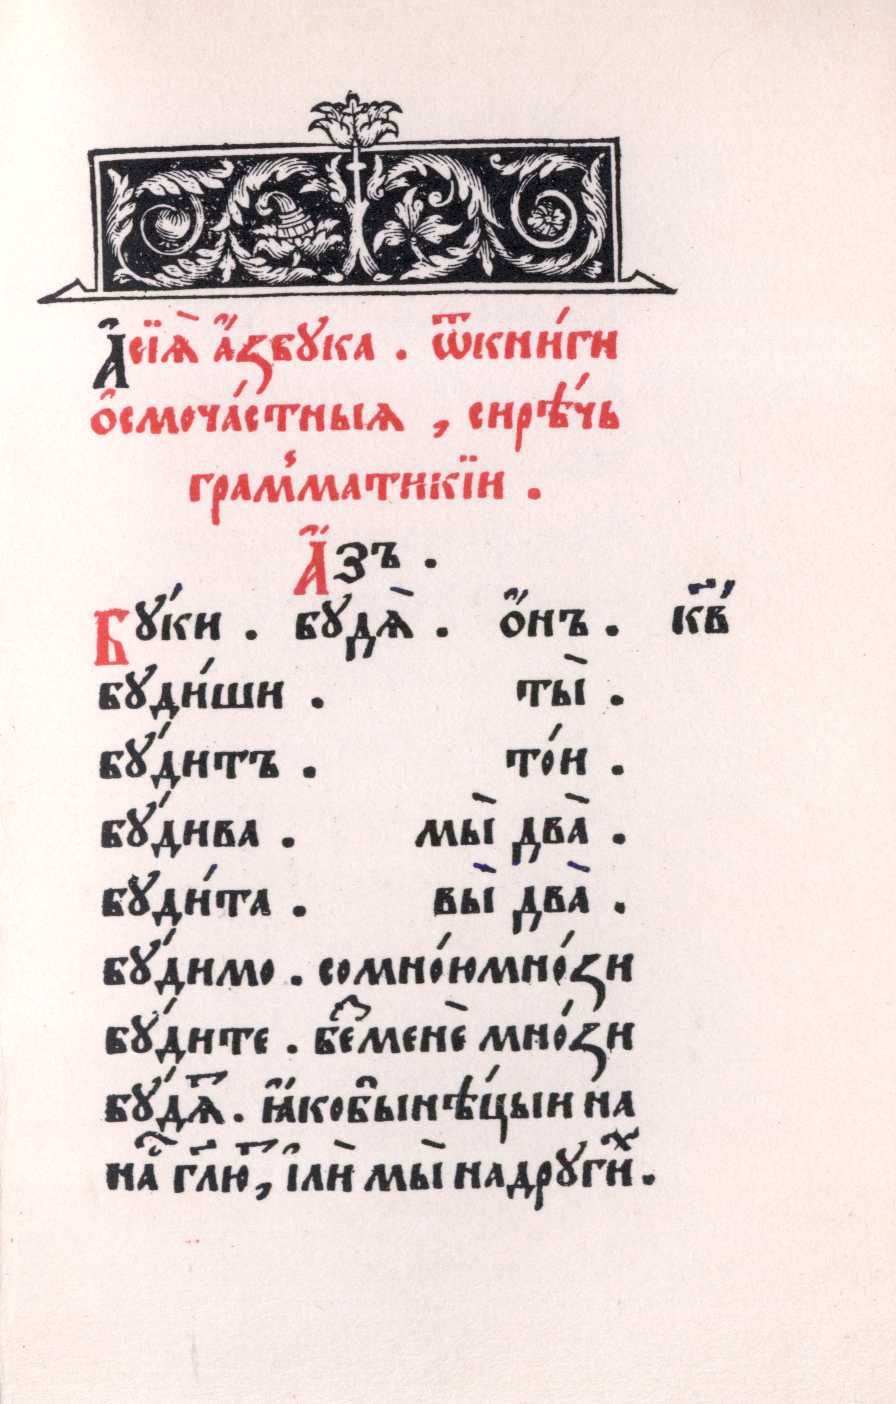 А҆сїѧ̀ а҆́збꙋка . ѿкни́ги
ѻ҆смоча́стныѧ , сирѣ́чь
грам́матикїи .
А҆́зъ .
Бꙋ́ки . бꙋдѧ̀ . ѻ҆́нъ . кв҃
бꙋди́ши . ты̀ .
бꙋ́дитъ . то́и .
бꙋ́дива . мы̀ два̀ .
бꙋди́та . вы̀ два̀ .
бꙋ́димо . сомно́юмно́ꙁи
бꙋ́дите . беⷥменѐ мно́ꙁи
бꙋ́дѧⷮ . ꙗ҆́кобы҆нѣ́цыи на
на́ⷭ глю҃ⷮ, і҆лѝ мы̀ надрꙋги́ⷯ .